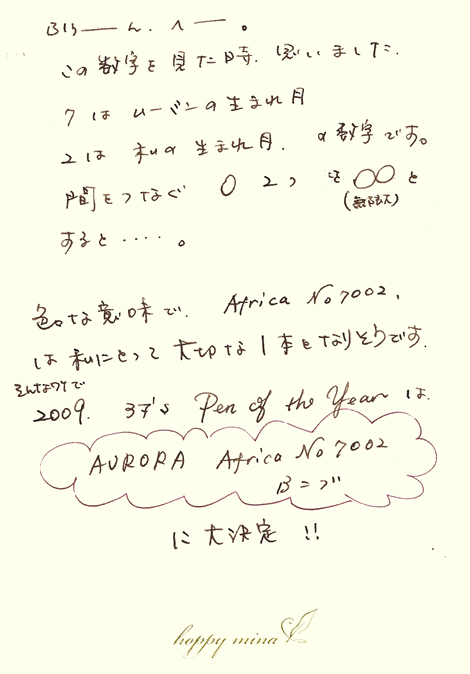 この数字を見た時、思いました。
7はムーミンの生まれ月
2は私の生まれ月、の数字です。
間をつなぐ 0 2つ を∞と
(無限大)
すると‥‥。
色々な意味で、Africa No7002、
は私にとって大切な1本となりそうです。
そんなワケで
2009. 37's Pen of the Year は、
AURORA Africa No 7002
に大決定 !!
happy mina